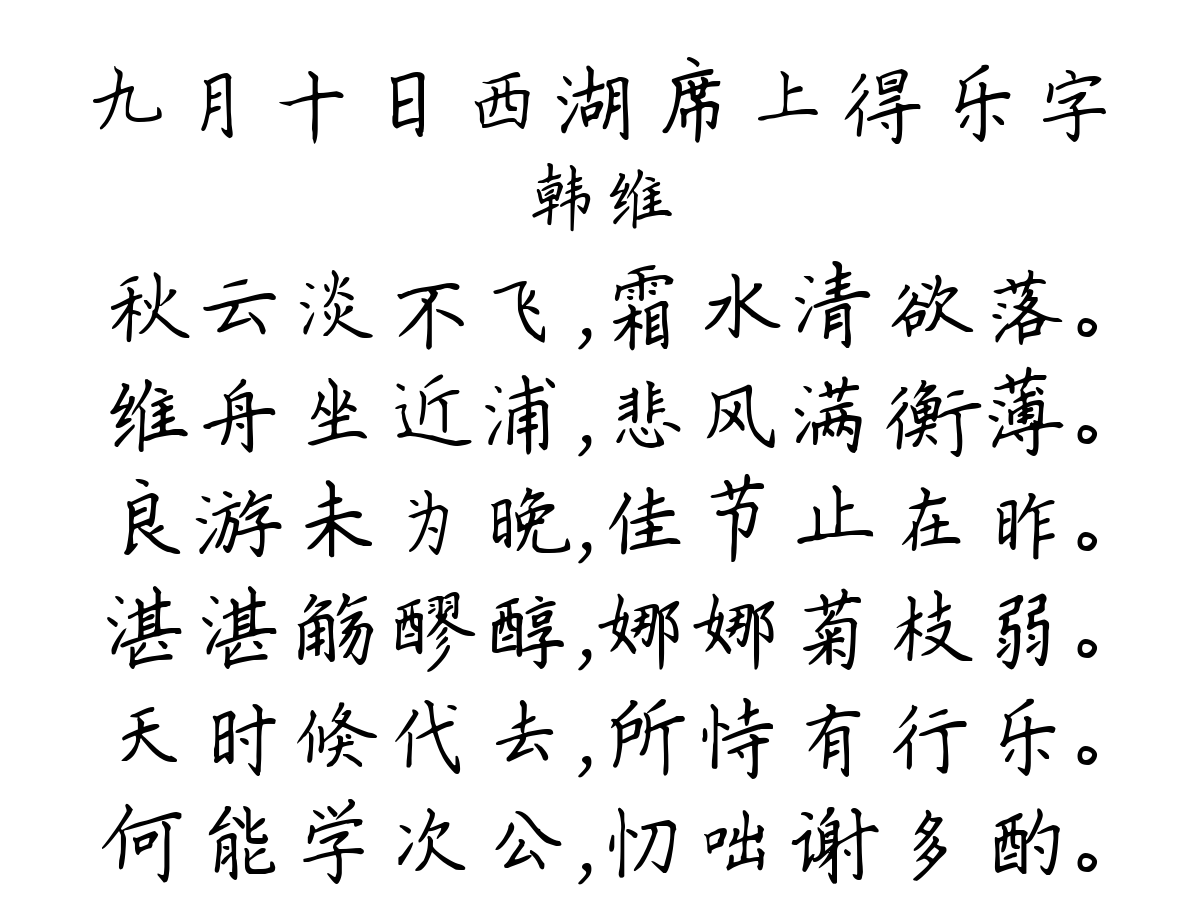 九月十日西湖席上得乐字
韩维
秋云淡不飞,霜水清欲落。
维舟坐近浦,悲风满衡薄。
良游未为晚,佳节止在昨。
湛湛觞醪醇,娜娜菊枝弱。
天时倏代去,所恃有行乐。
何能学次公,忉咄谢多酌。